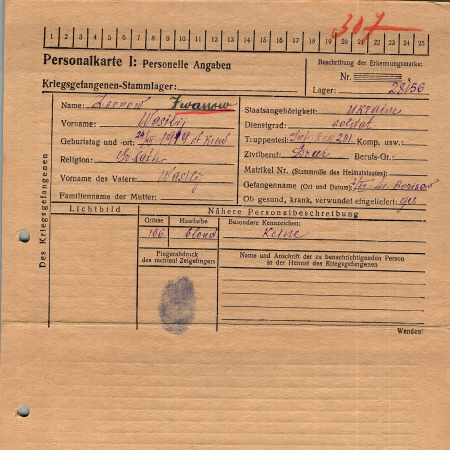 307
1 2 3 4 5 6 7 8 9 10 11 12 13 14 15 16 17 18 19 20 21 22 23 24 25
Personalkarte I: Personelle Angaben
Kriegsgefangenen-Stammlager:
Beschriftung der Erkennungsmarke:
Nr.
Lager: 28156
Des Kriegsgefangenen
Name: Iwanow
Vorname: Wasilij
Geburtstag und -ort: 1919
Religion:
Vorname des Vaters: Wasilij
Familienname der Mutter:
Staatsangehörigkeit: Ukraine
Dienstgrad: soldat
Truppenteil: 201 Komp. usw.:
Zivilberuf: Berufs-Gr.:
Matrikel Nr. (Stammrolle des Heimatstaates):
Gefangenname (Ort und Datum):
Ob gesund, krank, verwundet eingeliefert: ges
Lichtbild
Nähere Personalbeschreibung
Grösse
Haarfarbe
Besondere Kennzeichen:
166 blond Keine
Fingerabdruck
des rechten! Zeigefingers
Name und Anschrift der zu benachrichtigenden Person
in der Heimat des Kriegsgefangenen
Wenden!